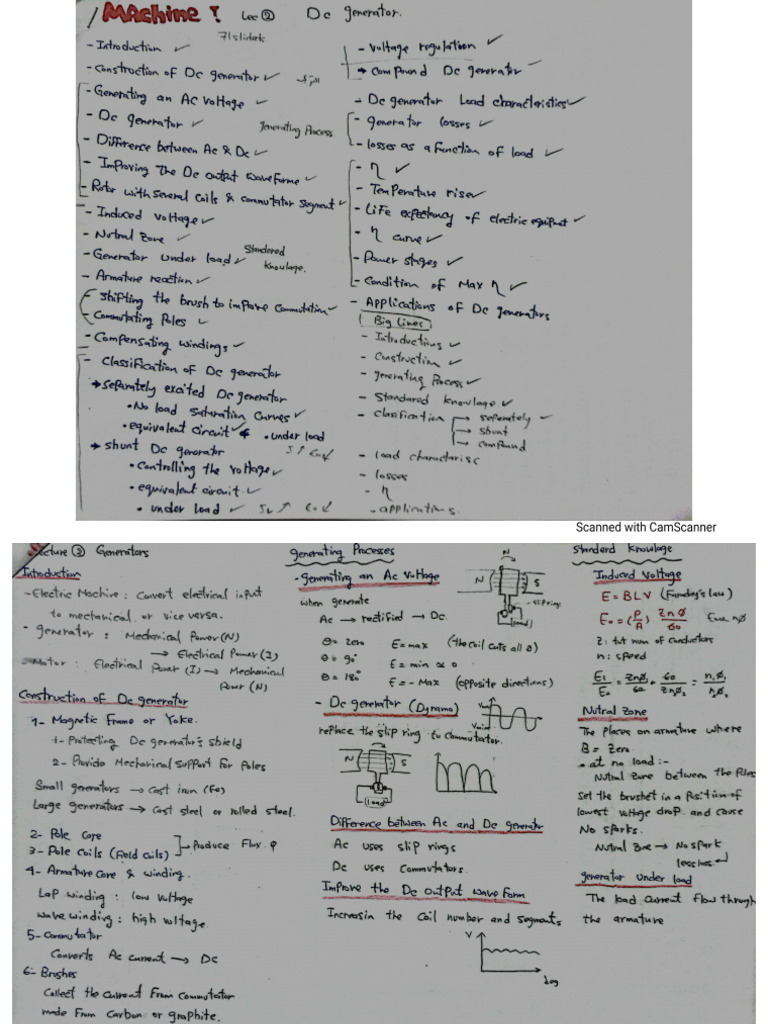 Machine 1 Lec ② Dc generator.
71 slides
- Introduction ✓
- Construction of Dc generator ✓
- Generating an Ac voltage ✓
- Dc generator ✓
generating Process
- Difference between Ac & Dc ✓
- Improving The Dc output waveforme ✓
- Rotor with several coils & commutator segment ✓
- Induced voltage ✓
- Nutral Zone ✓
- Generator under load ✓
Standered Knowlage.
- Armature reaction ✓
- shifting the brush to improve commutation ✓
- Commutating Poles ✓
- Compensating windings ✓
- Classification of Dc generator
→ separately excited Dc generator
• No load saturation Curves ✓
• equivalent circuit ✓ • under load
→ shunt Dc generator
• Controlling the voltage ✓
• equivalent circuit ✓
• under load ✓
- voltage regulation ✓
→ compound Dc generator ✓
- Dc generator Load characteristics ✓
- generator losses ✓
- losses as a function of load ✓
- η ✓
- Temperature rise ✓
- Life expectancy of electric equipmet ✓
- η curve ✓
- Power stages ✓
- Condition of Max η ✓
- Applications of Dc generators
Big Lines
- Introductions ✓
- Construction ✓
- generating Process ✓
- Standared knowlage ✓
- clasification → seperately ✓
→ shunt
→ compound
- load characterisc
- losses
- η
- applications.
Scanned with CamScanner
Lecture ② Generators
Introduction
- Electric Machine : Convert electrical input
to mechanical or vice versa.
- generator : Mechanical Power (N)
→ Electrical Power (I)
- Motor : Electrical Power (I) → Mechanical
Power (N)
Construction of Dc generator
1- Magnetic Frame or Yoke.
1- Protecting Dc generator's shield
2- Provide Mechanical Support for Poles
Small generators → Cast iron (Fe)
Large generators → Cast steel or rolled steel.
2- Pole Core
3- Pole Coils (Field coils) Produce Flux φ
4- Armature Core & winding.
Lap winding : low voltage
wave winding : high voltage
5- Commutator
Converts Ac current → Dc
6- Brushes
Collect the current From commutator
made From carbon or graphite.
generating Processes
- Generating an Ac voltage
N N S
- slip ring
load
when generate
Ac → rectified → Dc.
θ = zero E = max (the coil cuts all φ)
θ = 90° E = min ∝ 0
θ = 180° E = - Max (opposite directions)
- Dc generator (Dynamo)
replace the slip ring to commutator.
N S
load
Difference between Ac and Dc generator
Ac uses slip rings
Dc uses Commutators.
Improve the Dc output wave Form
Increasin the Coil number and segments
V
deg
Standerd Knowlage
Induced Voltage
E = BLV (Faraday's law)
E₀ = (P/A) Znφ/60 E ∝ nφ
Z : tot num of conductors
n : speed
E₁/E₀ = Znφ₁/60 * 60/Zn₂φ₂ = n₁φ₁/n₂φ₂
Nutral Zone
The places on armature where
B = zero
• at no load :-
Nutral Zone between the Poles
set the brushet in a position of
lowest voltage drop and cause
No sparks.
Nutral Zone → No spark
less loss
generator under load
The load current flow through
the armature